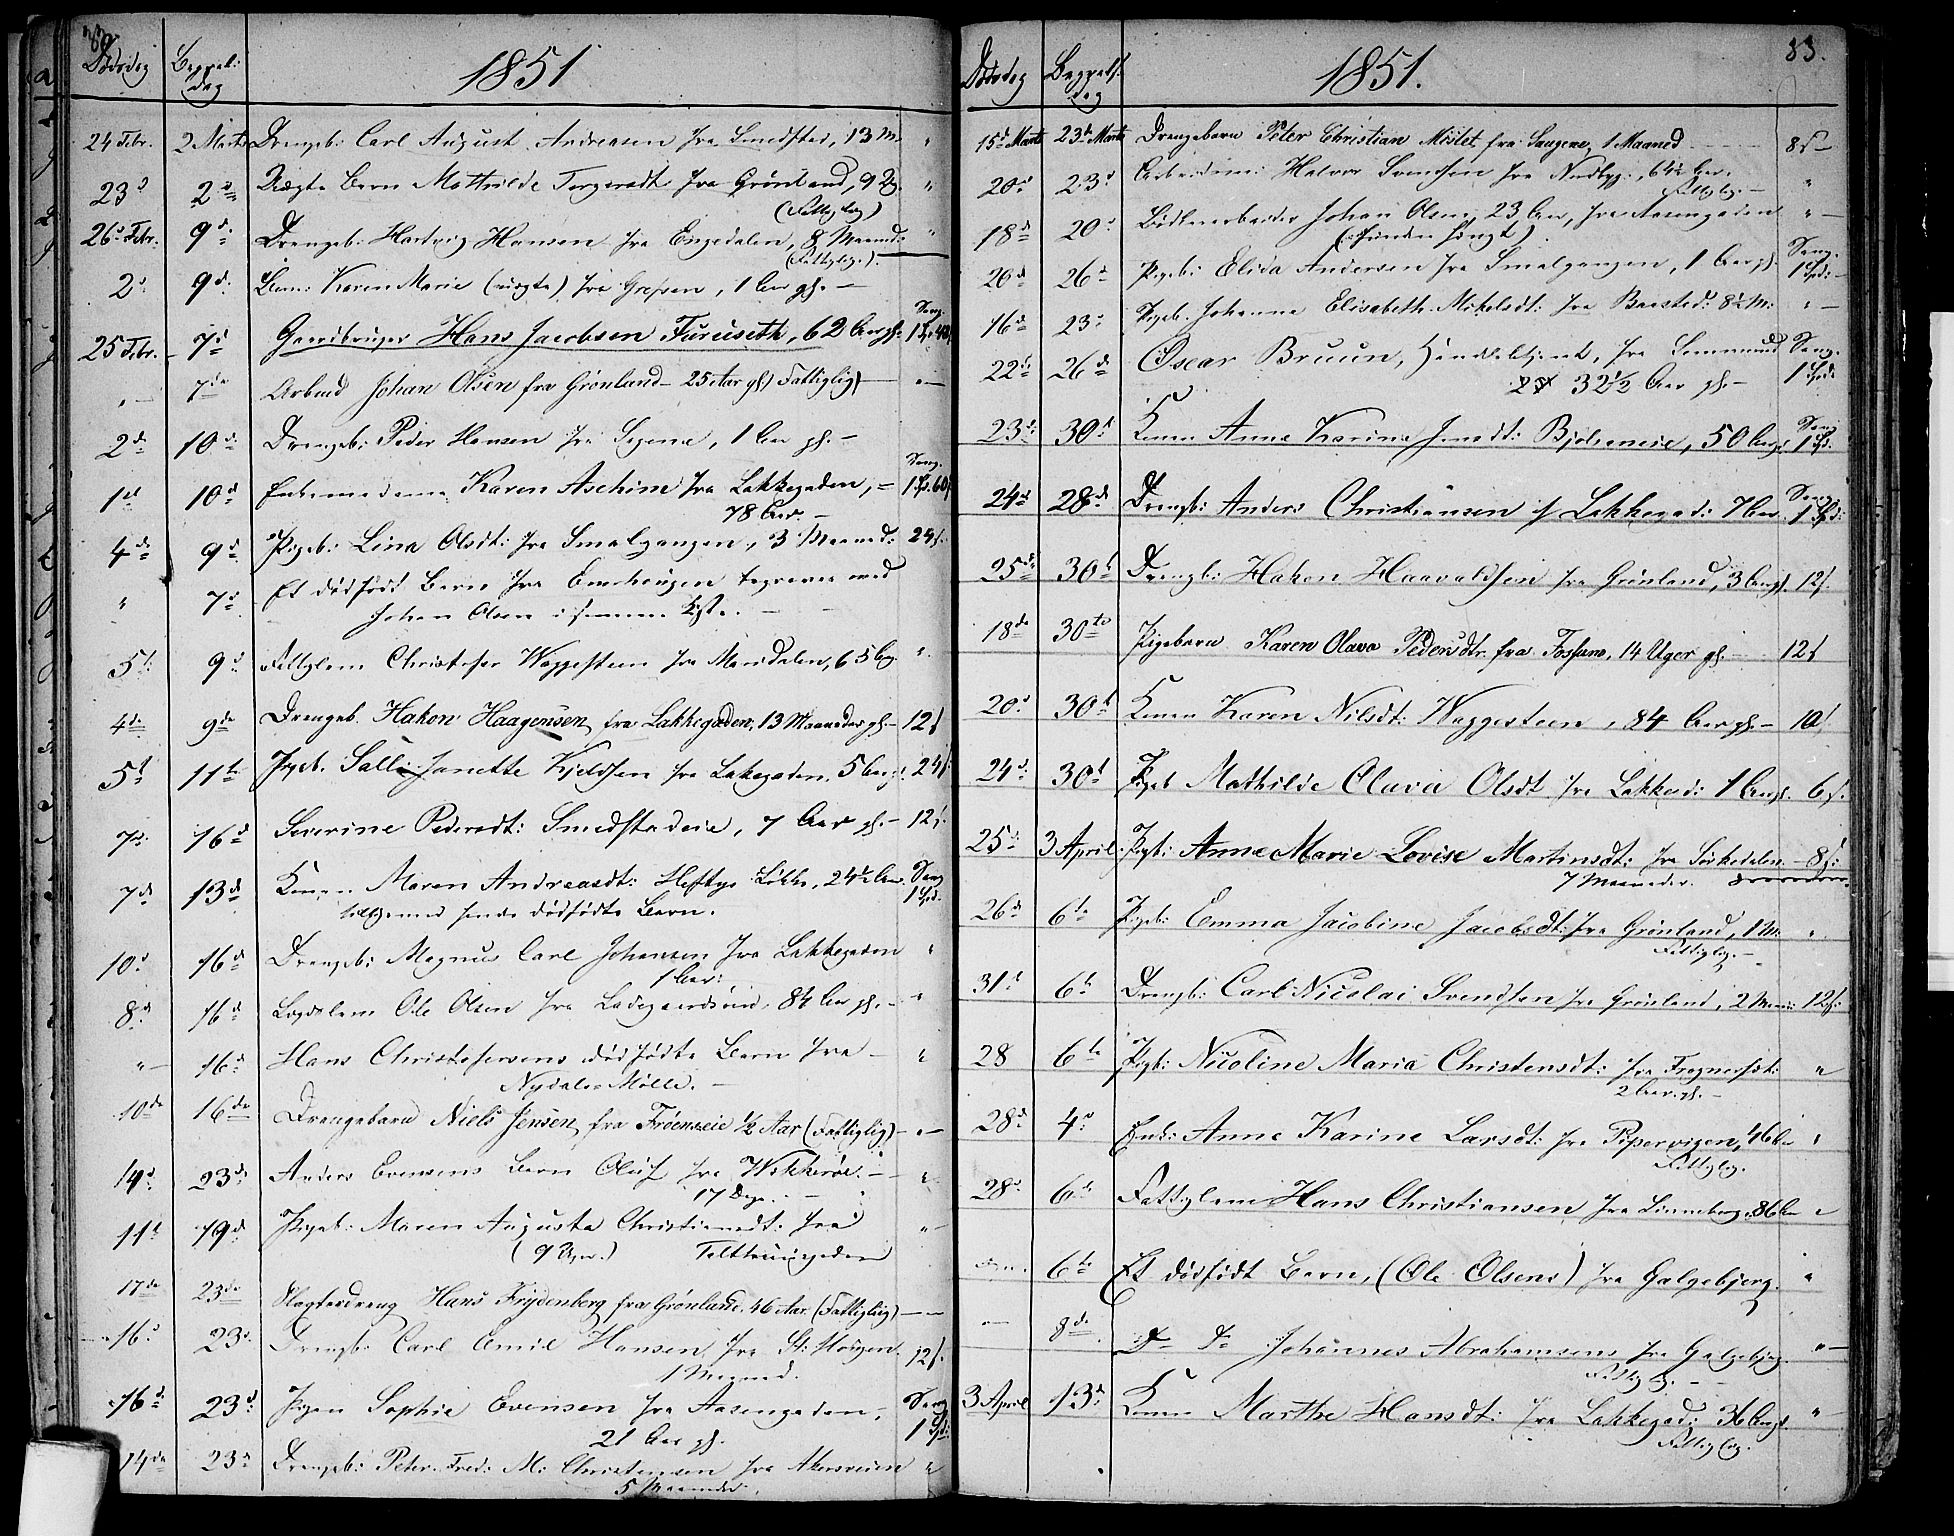 Dødsdag Begravel: dag 1851
24 Febr. 2 Marts Drengeb: Carl August Andreasen fra Smedstad, 13 M:
23 d 2 d Uægte Barn Mathilde Torgersdt fra Grønland, 9 Ug.
(Fattiglig)
26 d Febr. 9 d Drengeb: Hartvig Hansen fra Engedalen, 8 Maaned:
(Fattiglig.)
2 d 9 d Barn: Karen Marie (uægte) fra Grefsen, 1 Aar gl. —
Sang.
25 Febr. 7 d Gaardbruger Hans Jacobsen Furuseth, 62 Aar gl:
" — 7 de Arbmd Johan Olsen fra Grønland – 25 Aar gl. (Fattiglig)
2 de 10 d Drengeb: Peder Hansen fra Sagene, 1 Aar gl. –
Sang.
1 st 10 d Enkemadame Karen Aschim fra Lakkegaden, –
78 Aar. –
4 de 9 d Pigeb: Lina Olsdt: fra Smalgangen, 3 Maaned: 24 s.
" 7 d Et dødfødt Barn fra Enerhaugen begraves med
Johan Olsen i samme Kiste.
5 t 9 d Fattiglem Christofer Waggesteen fra Maridalen, 65 Aar
4 de 9 de Drengeb. Hakon Haagensen fra Lakkegaden, 13 Maaneder gl. – 12 s
5 t 11 te Pigeb. Salli Janette Kjeldsen fra Lakegaden. 5 Aar gl. 24 s.
7 de 16 d Severine Pedersdt: Smedstadeie, 7 Aar gl. – 12 s.
7 de 13 d Konen Maren Andreasdt: Heftye Løkke, 24½ Aar. Sang
tilligemed hendes dødfødte Barn.
10 d 16 d Drengeb: Magnus Carl Johansen fra Lakkegaden
1 Aar:
8 d 16 d Lægdslem Ole Olsen fra Ladegaardsøen, 84 Aar gl. –
" 16 d Hans Christofersens dødfødte Barn fra –
Nydalens Mølle. –
10 de 16 de Drengebarn Niels Jensen fra Frøenseie ½ Aar (Fattiglig)
14 d 23 d Anders Evensens Barn Oluf fra
17 Dage.
11 t 19 d Pigeb: Maren Augusta Christiansdt: fra
(9 Uger.) Tolthuusgaden
17 de 23 de Slagterdreng Hans Frydenberg fra Grønland. 46 Aar. (Fattiglig)
16 d 23 d Drengb. Carl Emil Hansen, fra St: Haugen. 12 s.
1 Maaned.
16 d 23 d Pigen Sophie Evensen fra Aasengaden, Sang
21 Aar gl.
14 de 23 d Drengeb: Peter Fred: M: Christensen fra Akersveien
5 Maaneder.
Dødsdag Begravels: dag 1851. 83.
15 d Marts 23 d Marts Drengebarn Peter Christian Mostet fra Saugene, 1 Maaned 8 s —
20 d 23 d Arbeidsm: Halvor Svendsen fra Nedbyg:, 64½ Aar.
Fattiglig. —
18 d 20 d Bødkerarbeider Johan Olsen, 23 Aar, fra Aasengaden
(funden hængt)
20 d 26 d Pigeb: Elida Andersen fra Smalgangen, 1 Aar gl. Sang.
16 d 23 d Pigeb. Johanna Elisabeth Mikelsdt: fra Bakstad: 8½ M:
22 d 26 d Oscar Bruun, Handelsbetjent, fra Sang.
32½ Aar gl. –
23 d 30 d Konen Anne Karine Jonsdt: Bjølseneie, 50 Aar gl. Sang
24 d 28 d Drengb: Anders Christiansen af Lakkegad: 7 Aar Sang
25 de 30 d Drengb: Hakon Haavaldsen fra Grønland, 3 Aar gl. 12 s.
18 de 30 te Pigebarn Karen Olava Pedersdtr. fra Fossum, 14 Uger gl. — 12 s
20 d 30 t Konen Karen Nilsdt: Waggesteen, 84 Aar gl. – 10 s.
24 d 30 t Pigeb Mathilde Olava Olsdt fra Lakkegd: 1 Aar gl. 6 s.
25 d 3 April Pigb: Anne Marie Lovise Martinsdt: fra Sørkedalen – 8 s:
7 Maaneder.
26 d 6 te Pigeb: Emma Jacobine Jacobsdt: fra Grønland, 1 M:
Fattiglig. –
31 t 6 te Drengb: Carl Nicolai Svendsen fra Grønland, 2 Maan: 12 s:
28 6 te Pigeb: Nicoline Maria Christensdt: fra Frognerhst:
2 Aar gl. –
28 d 4 d Enke: Anne Karine Larsdt: fra Pipervigen, 46 Aar
Fattiglig.
28 d 6 te Fattiglem Hans Christiansen fra Linneberg, 86 Aar
6 te Et dødfødt Barn, (Ole Olsens) fra Galgebjerg.
— 8 de Do Do Johannes Abrahamsens fra Galgebjerg.
Fattiglig. —
3 April 13 d Konen Marthe Hansdt: fra Lakkegad: 36 Aar gl.
Fattiglig.